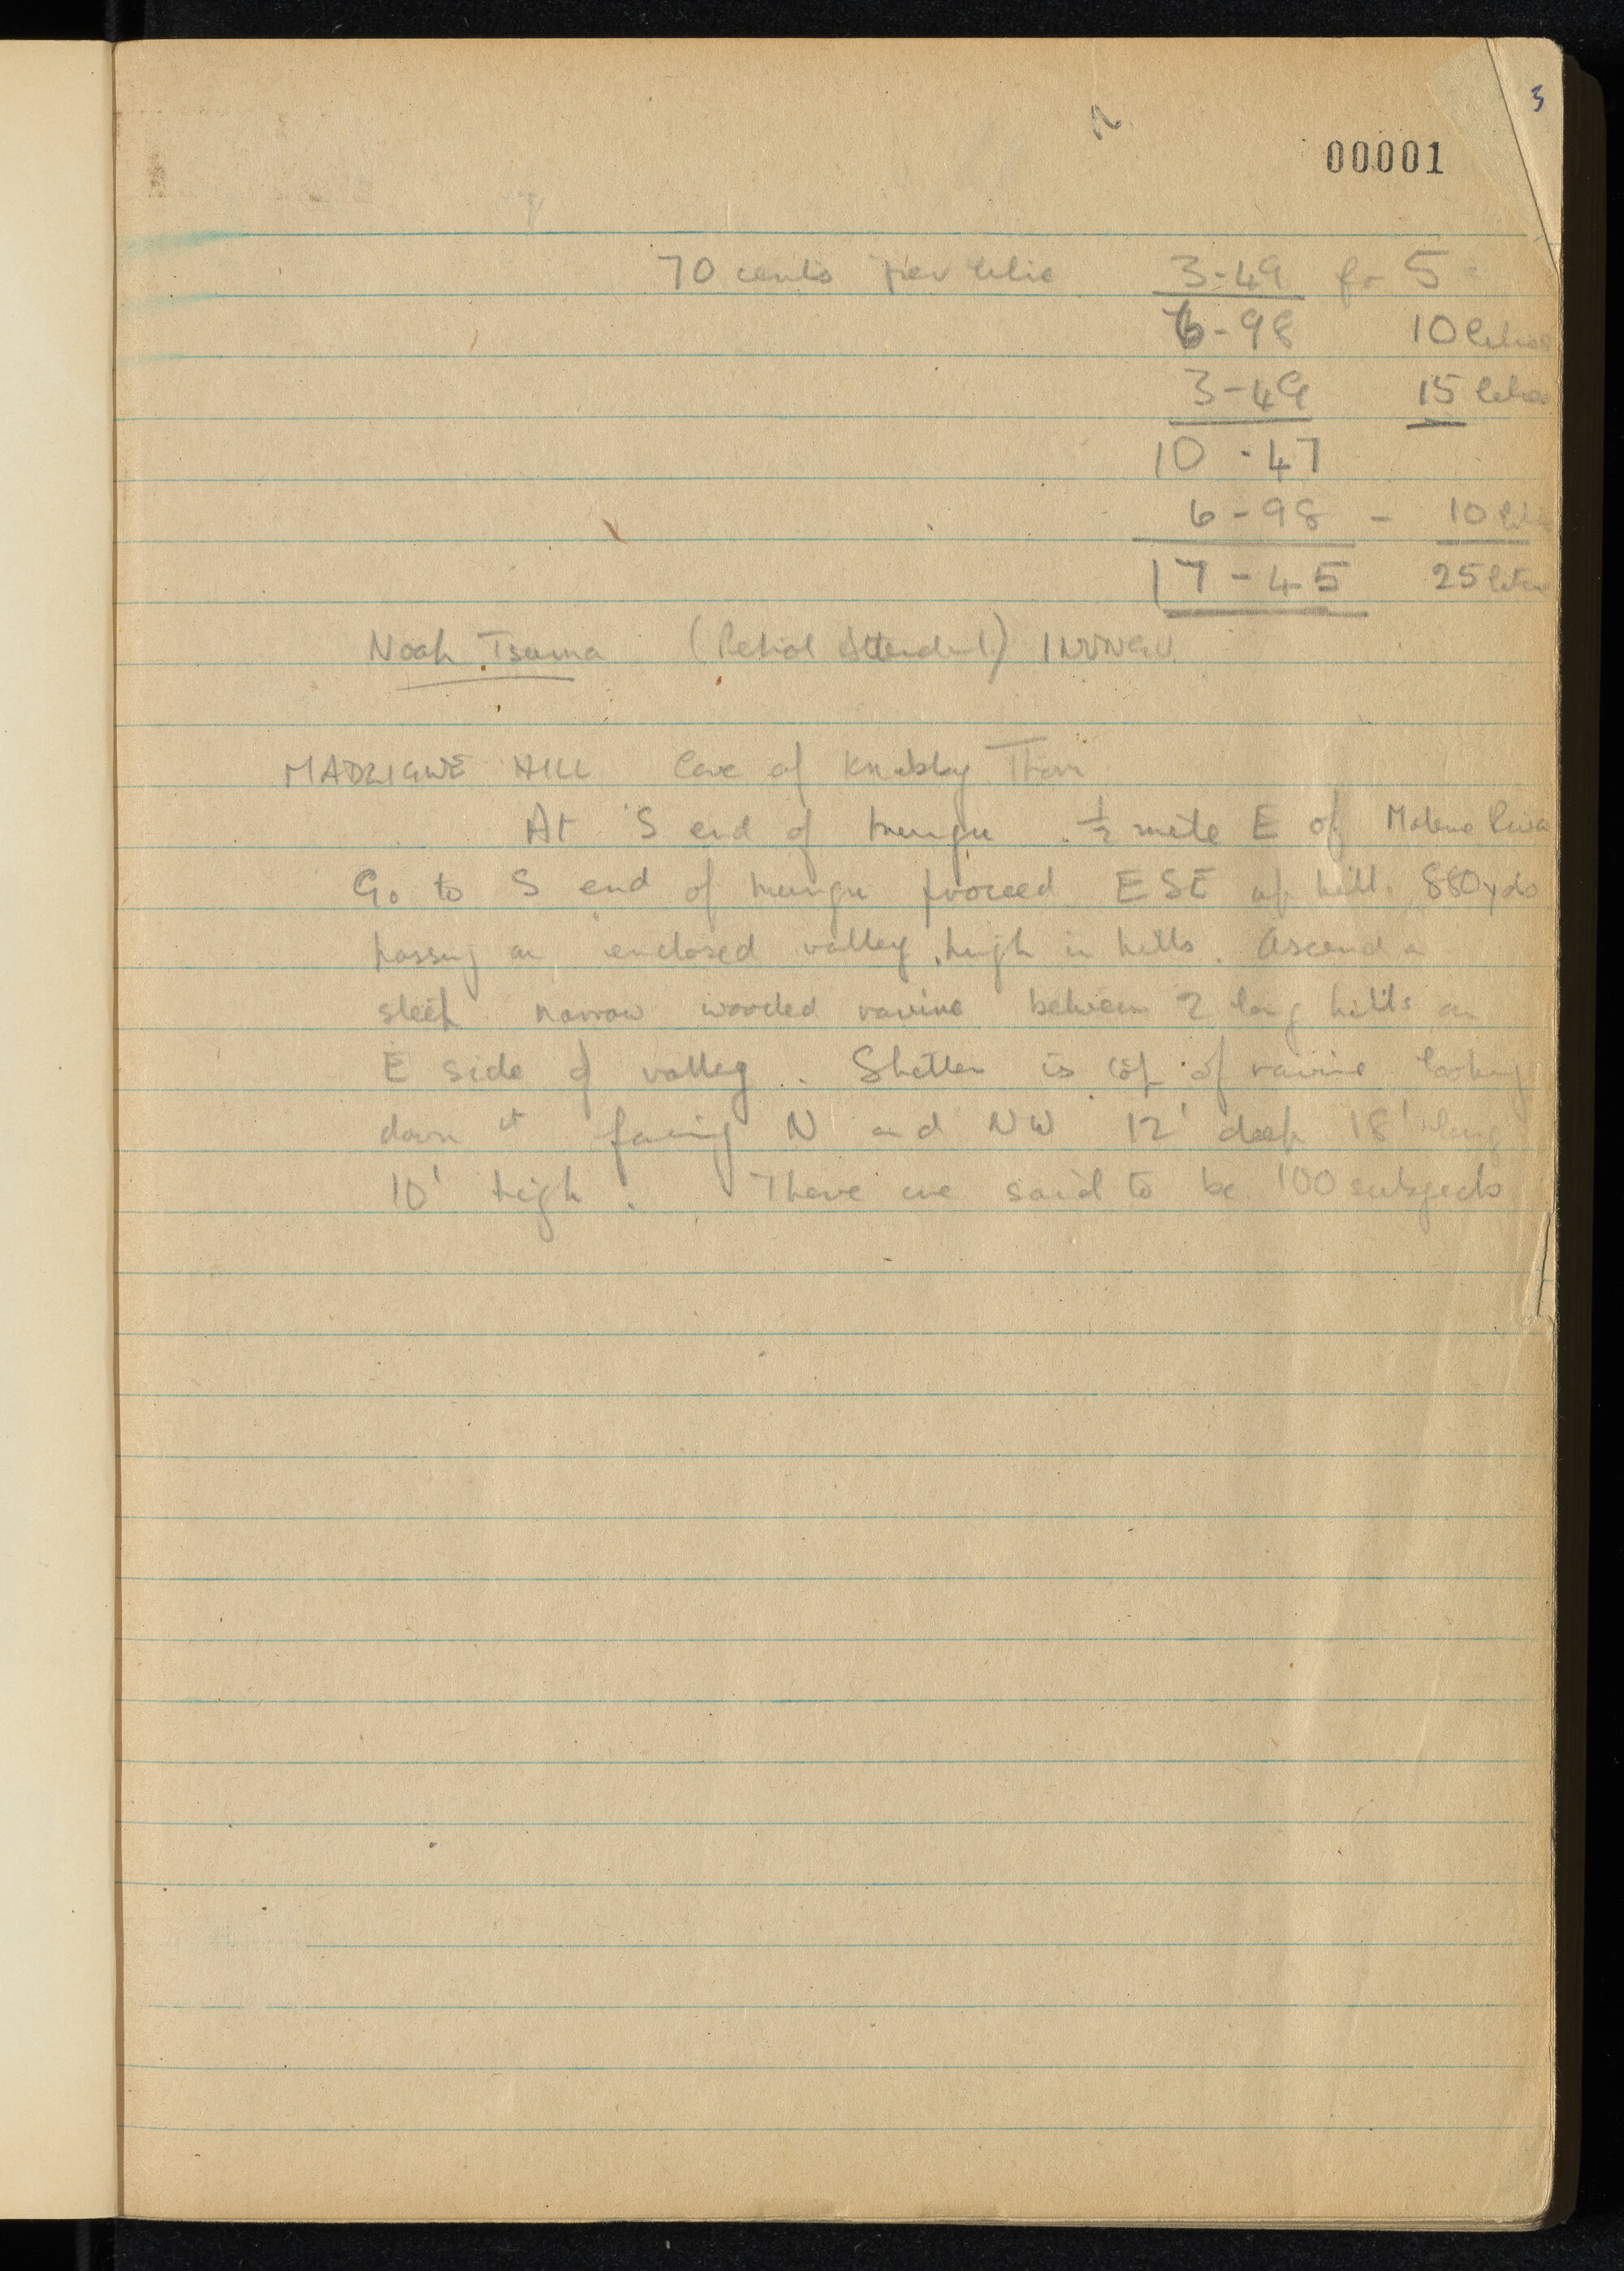 3
00001
70 cents per litre 3-49 for 5
6-98 10 litres
3-49 15 litres
10-47
6-98 - 10
17-45 25 litres
Noah Tsuma (Petrol Attendant)
HILL Cave of Knobbly Thorn
At S end of ½ mile E of
Go to S end of proceed ESE up hill. 880 yds
passing an enclosed valley high in hills. Ascend a
steep narrow wooded ravine between 2 long hills on
E side of valley. Shelter is top of ravine looking
down it facing N and NW 12' deep 18' long
10' high. There are said to be 100 subjects